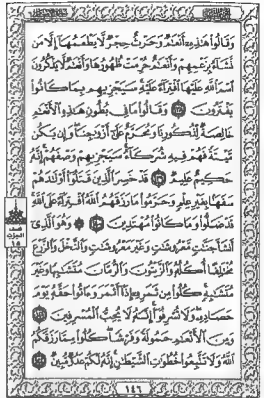 وَقَالُوا۟ هَٰذِهِۦٓ أَنْعَٰمٌ وَحَرْثٌ حِجْرٌ لَّا يَطْعَمُهَآ إِلَّا مَن
نَّشَآءُ بِزَعْمِهِمْ وَأَنْعَٰمٌ حُرِّمَتْ ظُهُورُهَا وَأَنْعَٰمٌ لَّا يَذْكُرُونَ
ٱسْمَ ٱللَّهِ عَلَيْهَا ٱفْتِرَآءً عَلَيْهِ سَيَجْزِيهِم بِمَا كَانُوا۟
يَفْتَرُونَ ١٣٨ وَقَالُوا۟ مَا فِى بُطُونِ هَٰذِهِ ٱلْأَنْعَٰمِ
خَالِصَةٌ لِّذُكُورِنَا وَمُحَرَّمٌ عَلَىٰٓ أَزْوَٰجِنَا وَإِن يَكُن
مَّيْتَةً فَهُمْ فِيهِ شُرَكَآءُ سَيَجْزِيهِمْ وَصْفَهُمْ إِنَّهُۥ
حَكِيمٌ عَلِيمٌ ١٣٩ قَدْ خَسِرَ ٱلَّذِينَ قَتَلُوٓا۟ أَوْلَٰدَهُمْ
سَفَهًۢا بِغَيْرِ عِلْمٍ وَحَرَّمُوا۟ مَا رَزَقَهُمُ ٱللَّهُ ٱفْتِرَآءً عَلَى ٱللَّهِ
قَدْ ضَلُّوا۟ وَمَا كَانُوا۟ مُهْتَدِينَ ١٤٠ وَهُوَ ٱلَّذِىٓ
أَنشَأَ جَنَّٰتٍ مَّعْرُوشَٰتٍ وَغَيْرَ مَعْرُوشَٰتٍ وَٱلنَّخْلَ وَٱلزَّرْعَ
مُخْتَلِفًا أُكُلُهُۥ وَٱلزَّيْتُونَ وَٱلرُّمَّانَ مُتَشَٰبِهًا وَغَيْرَ
مُتَشَٰبِهٍ كُلُوا۟ مِن ثَمَرِهِۦٓ إِذَآ أَثْمَرَ وَءَاتُوا۟ حَقَّهُۥ يَوْمَ
حَصَادِهِۦ وَلَا تُسْرِفُوٓا۟ إِنَّهُۥ لَا يُحِبُّ ٱلْمُسْرِفِينَ ١٤١
وَمِنَ ٱلْأَنْعَٰمِ حَمُولَةً وَفَرْشًا كُلُوا۟ مِمَّا رَزَقَكُمُ
ٱللَّهُ وَلَا تَتَّبِعُوا۟ خُطُوَٰتِ ٱلشَّيْطَٰنِ إِنَّهُۥ لَكُمْ عَدُوٌّ مُّبِينٌ ١٤٢
نصف
الحزب
١٥
١٤٦